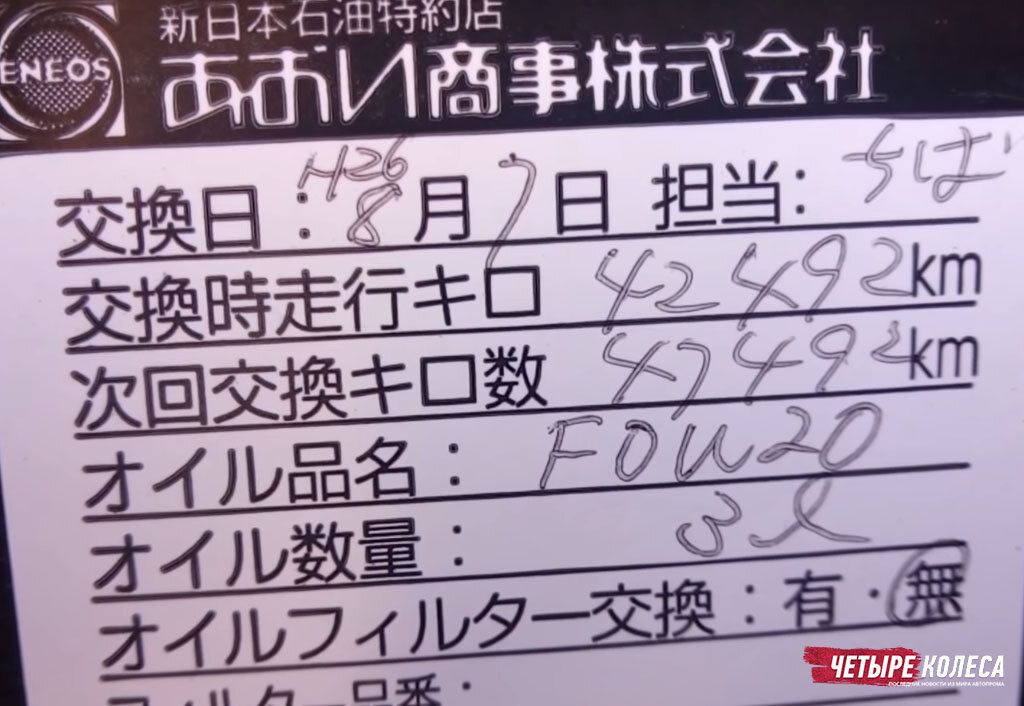 新日本石油特約店
ENEOS
あおい商事株式会社
H26
交換日：8月7日 担当：ちば
交換時走行キロ 42492km
次回交換キロ数 47492km
オイル品名： FOW20
オイル数量： 3L
オイルフィルター交換：有・無
フィルター品番：
ЧЕТЫРЕ КОЛЕСА
ПОСЛЕДНИЕ НОВОСТИ ИЗ МИРА АВТОПРОМА